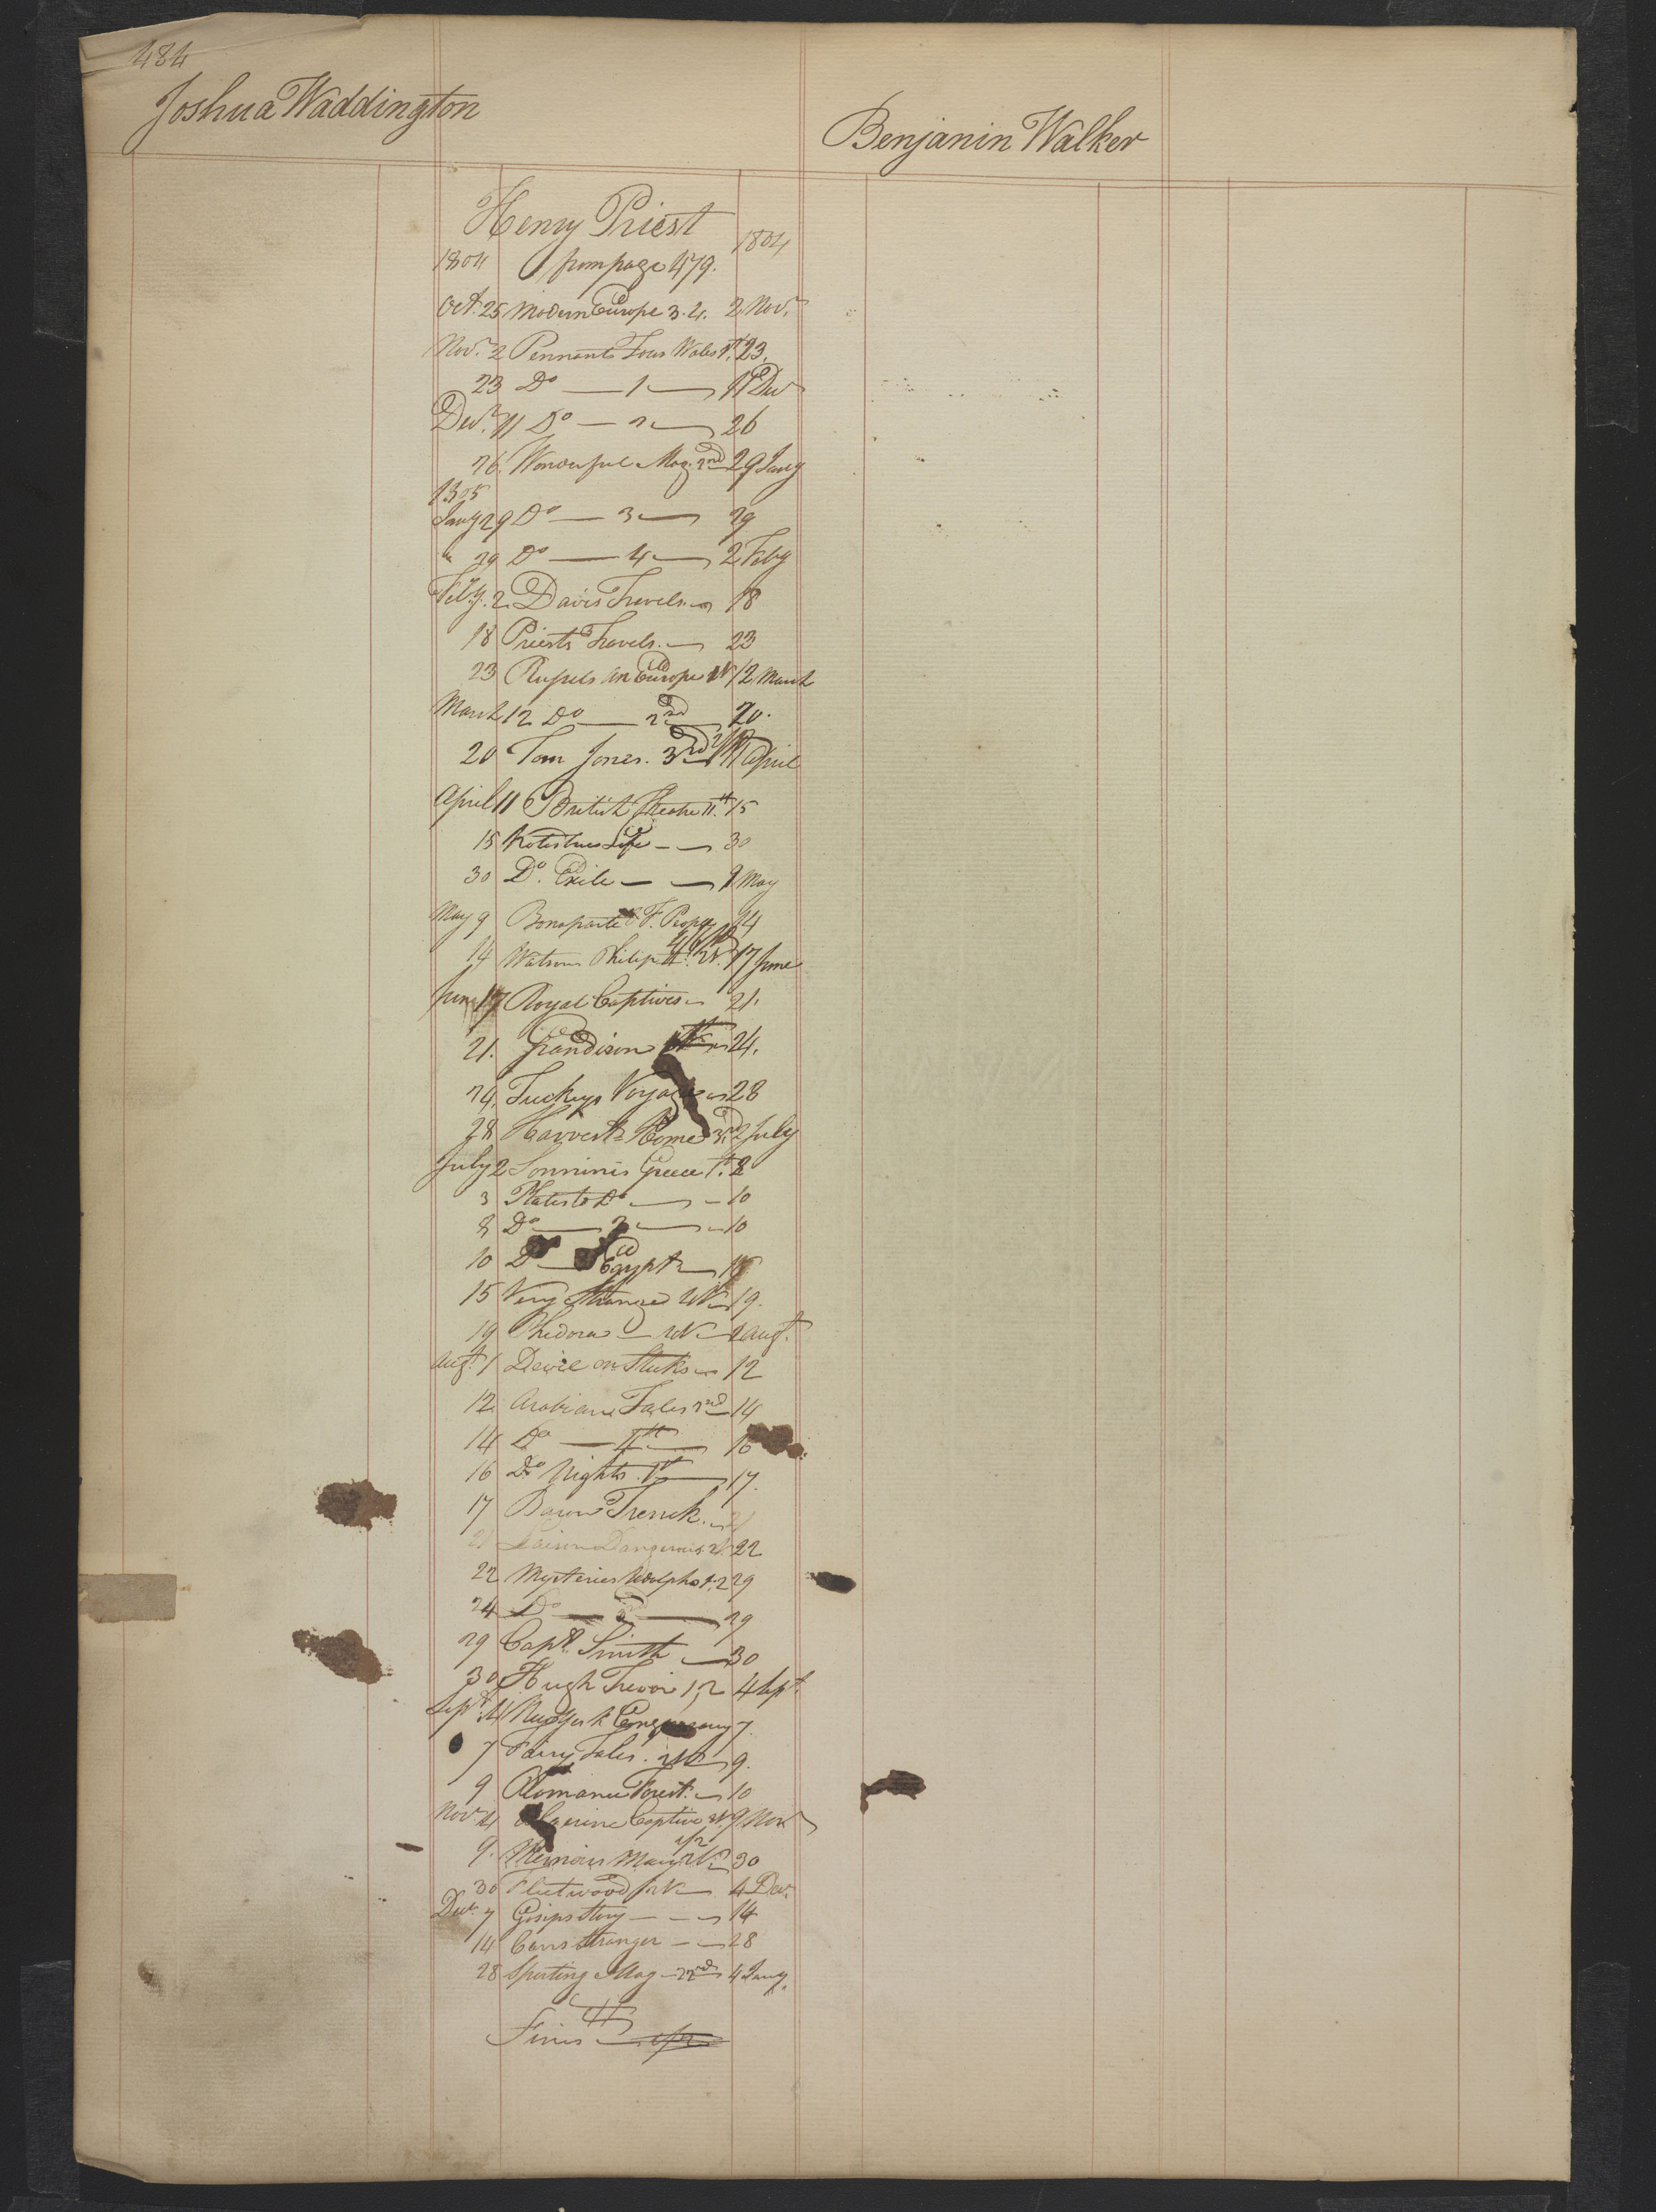 484
Joshua Waddington
Benjanin Walker
Henry Priest
1804 from page 479. 1804
Oct. 25 Modern Europe 3.4. 2 Nov.
Nov.r 2 Pennants Tour Wales 23.
23 Do — 1 — 11 Dec
Dec.r 11 Do — 2 — 26
26. Wonderful Mag. 2nd 29 Jany
1805
Jany 29 Do — 3 — 29
" 29 Do — 4 — 2 Feby
Feby. 2. Davis Travels. 18
18 Priests Travels. — 23
23 Russels Mn Europe 1st 12 March
March 12 Do — 2nd 20.
20 Tom Jones. 3rd 11 April
April 11 British Theatre 11th 15
15 Kotzebues Life — — 30
30 Do. Exile — — 9 May
May 9 Bonaparte & F. People 14
14 Watsons Philip 17 June
June 17 Royal Captives 21.
21. Grandison 24.
24. Tuckeys Voyage 28
28 Harvest Home 3rd 2 July
July 2 Sonninis Greece 1st. 8
3 Plates to Do — — 10
8 Do — 2 — 10
10 Do — Egypt — 15
15 Very Strange 2V 19.
19 Thedora — 2V — 1 Augt.
Augt. 1 Devil on Sticks 12
12. Arabian Tales 3rd 14
14 Do — 4th — 16
16 Do Nights. 1st — 17.
17 Baron Trenck. 21
21 Laison Dangerous. 2V. 22
22 Mysteries Udolpho 1.2 29
24 Do — 3rd — 29
29 Capt. Smith — 30
30 Hugh Trevor 1,2 4 Sept.
Sept. 4 New York 7.
7 Fairy Tales. 2V 9.
9 Romance Forest. 10
Nov 4 Algerine Captive 2V. 9 Nov
9. Memoirs Mary 2V 30
30 Fleetwood 2V 4 Dec.
Dec. 7 Gosips Story — — 14
14 Cavs Stranger — — 28
28 Sporting Mag — 22nd 4 Jany.
Finis